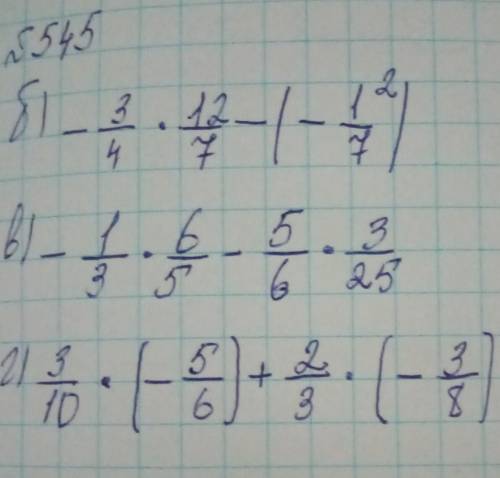 №545
б) - 3/4 · 12/7 - (- 1²/7)
в) - 1/3 · 6/5 - 5/6 · 3/25
г) 3/10 · (- 5/6) + 2/3 · (- 3/8)